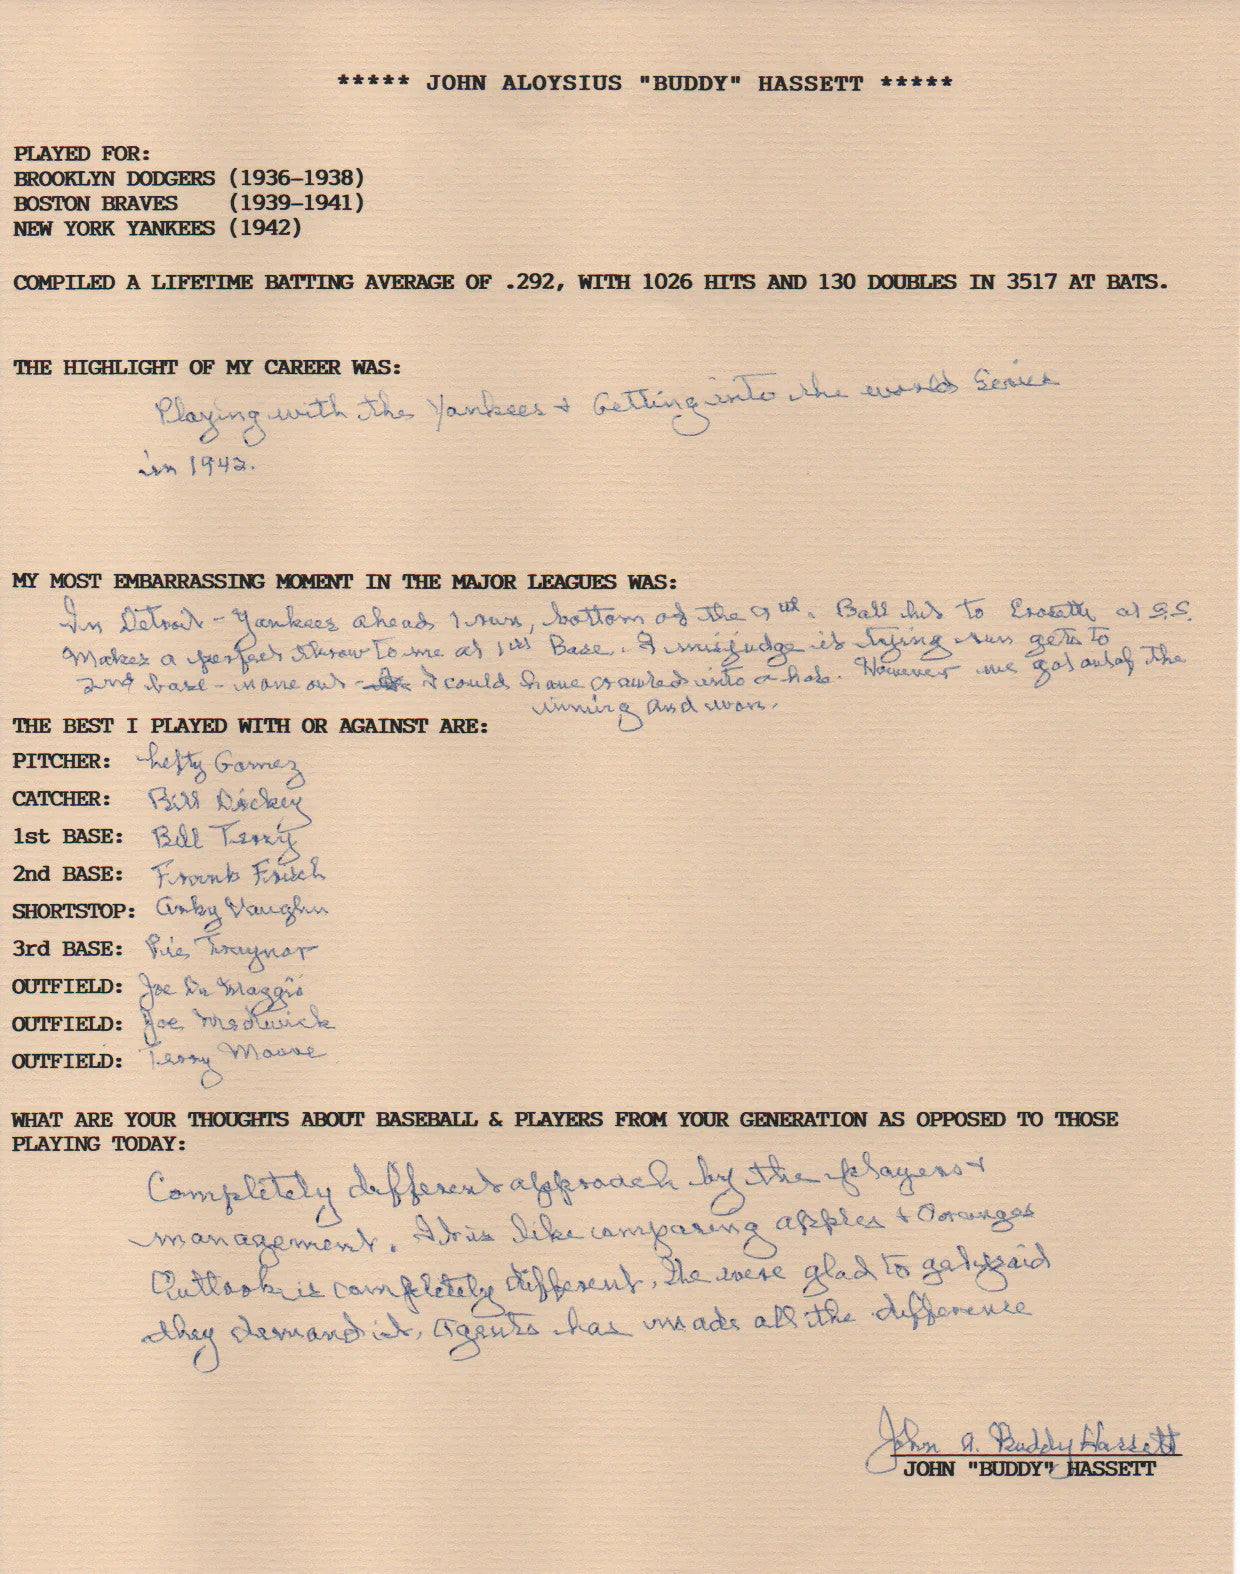 ***** JOHN ALOYSIUS "BUDDY" HASSETT *****
PLAYED FOR:
BROOKLYN DODGERS (1936-1938)
BOSTON BRAVES (1939-1941)
NEW YORK YANKEES (1942)
COMPILED A LIFETIME BATTING AVERAGE OF .292, WITH 1026 HITS AND 130 DOUBLES IN 3517 AT BATS.
THE HIGHLIGHT OF MY CAREER WAS:
Playing with the Yankees + Getting into the world Series
in 1942.
MY MOST EMBARRASSING MOMENT IN THE MAJOR LEAGUES WAS:
In Detroit - Yankees ahead 1 run, bottom of the 9th. Ball hit to Crosetti at S.S.
Makes a perfect throw to me at 1st Base. I misjudge it tying run gets to
2nd base - none out - I could have crawled into a hole. However we got out of the
inning and won.
THE BEST I PLAYED WITH OR AGAINST ARE:
PITCHER: Lefty Gomez
CATCHER: Bill Dickey
1st BASE: Bill Terry
2nd BASE: Frank Frisch
SHORTSTOP: Arky Vaughn
3rd BASE: Pie Traynor
OUTFIELD: Joe Di Maggio
OUTFIELD: Joe Medwick
OUTFIELD: Terry Moore
WHAT ARE YOUR THOUGHTS ABOUT BASEBALL & PLAYERS FROM YOUR GENERATION AS OPPOSED TO THOSE
PLAYING TODAY:
Completely different approach by the players +
management. It is like comparing apples + Oranges
Outlook is completely different. We were glad to get paid
they demand it. Agents has made all the difference
John A. Buddy Hassett
JOHN "BUDDY" HASSETT